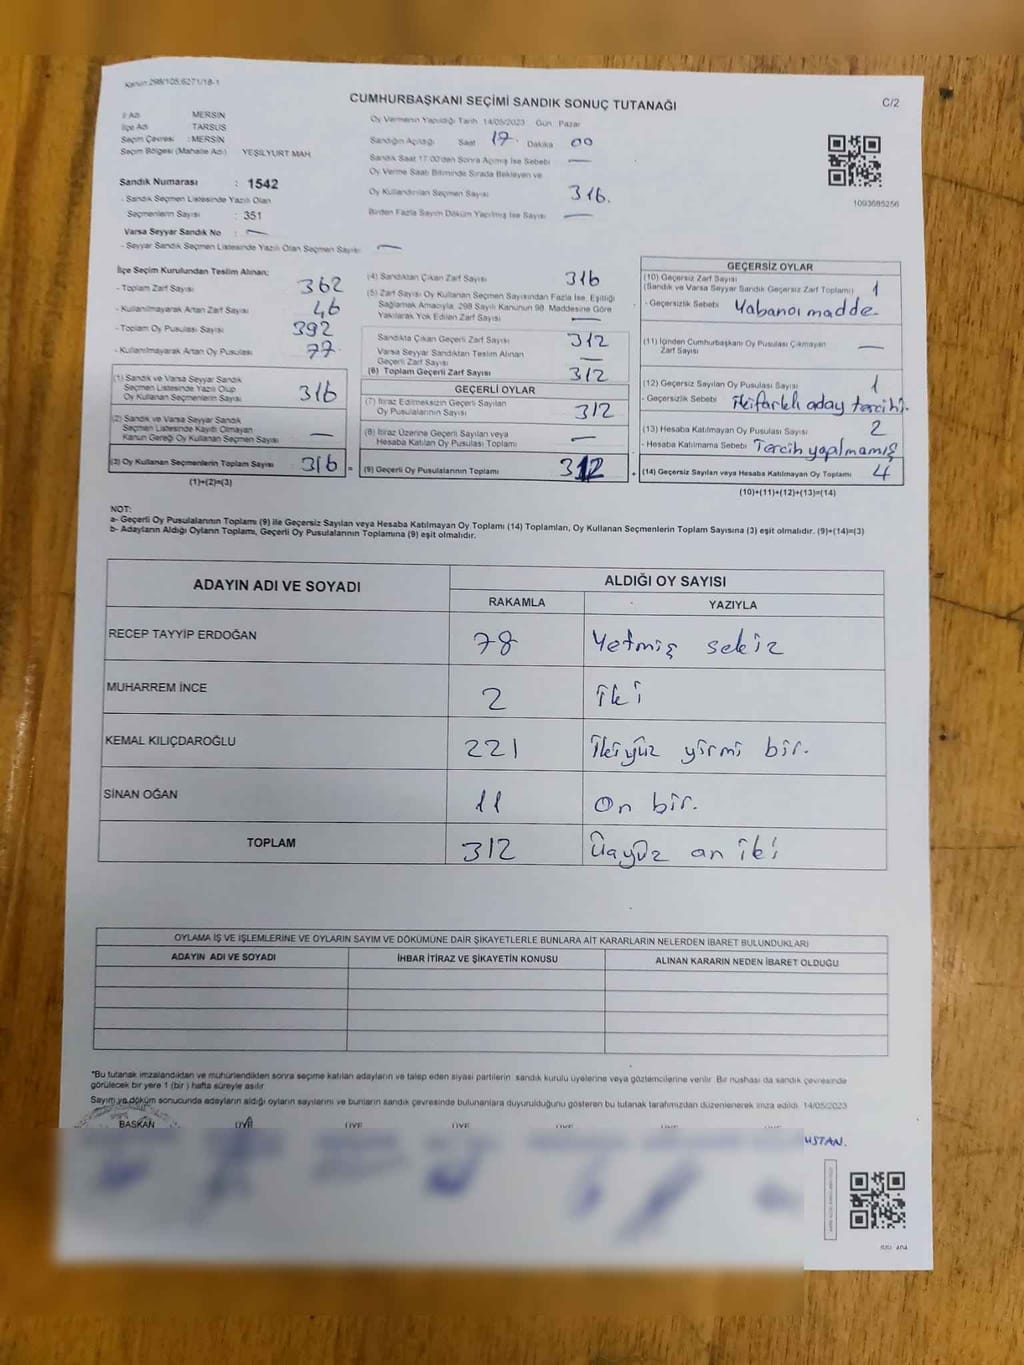 Kanun 298/105;6271/18-1
CUMHURBAŞKANI SEÇİMİ SANDIK SONUÇ TUTANAĞI
C/2
İl Adı MERSİN
İlçe Adı TARSUS
Seçim Çevresi : MERSİN
Seçim Bölgesi (Mahalle Adı) YEŞİLYURT MAH
Sandık Numarası : 1542
- Sandık Seçmen Listesinde Yazılı Olan
Seçmenlerin Sayısı : 351
Varsa Seyyar Sandık No : —
- Seyyar Sandık Seçmen Listesinde Yazılı Olan Seçmen Sayısı —
Oy Vermenin Yapıldığı Tarih 14/05/2023 Gün Pazar
Sandığın Açıldığı Saat 17 Dakika 00
Sandık Saat 17:00'den Sonra Açılmış İse Sebebi —
Oy Verme Saati Bitiminde Sırada Bekleyen ve
Oy Kullandırılan Seçmen Sayısı 316.
Birden Fazla Sayım Döküm Yapılmış İse Sayısı —
1093685256
İlçe Seçim Kurulundan Teslim Alınan;
- Toplam Zarf Sayısı 362
- Kullanılmayarak Artan Zarf Sayısı 46
- Toplam Oy Pusulası Sayısı 392
- Kullanılmayarak Artan Oy Pusulası 77
(1) Sandık ve Varsa Seyyar Sandık
Seçmen Listesinde Yazılı Olup
Oy Kullanan Seçmenlerin Sayısı 316
(2) Sandık ve Varsa Seyyar Sandık
Seçmen Listesinde Kayıtlı Olmayan
Kanun Gereği Oy Kullanan Seçmen Sayısı —
(3) Oy Kullanan Seçmenlerin Toplam Sayısı 316 =
(1)+(2)=(3)
(4) Sandıktan Çıkan Zarf Sayısı 316
(5) Zarf Sayısı Oy Kullanan Seçmen Sayısından Fazla İse, Eşitliği
Sağlamak Amacıyla, 298 Sayılı Kanunun 98. Maddesine Göre
Yakılarak Yok Edilen Zarf Sayısı —
Sandıkta Çıkan Geçerli Zarf Sayısı 312
Varsa Seyyar Sandıktan Teslim Alınan
Geçerli Zarf Sayısı —
(6) Toplam Geçerli Zarf Sayısı 312
GEÇERLİ OYLAR
(7) İtiraz Edilmeksizin Geçerli Sayılan
Oy Pusulalarının Sayısı 312
(8) İtiraz Üzerine Geçerli Sayılan veya
Hesaba Katılan Oy Pusulası Toplamı —
(9) Geçerli Oy Pusulalarının Toplamı 312 +
GEÇERSİZ OYLAR
(10) Geçersiz Zarf Sayısı
(Sandık ve Varsa Seyyar Sandık Geçersiz Zarf Toplamı) 1
- Geçersizlik Sebebi Yabancı madde.
(11) İçinden Cumhurbaşkanı Oy Pusulası Çıkmayan
Zarf Sayısı —
(12) Geçersiz Sayılan Oy Pusulası Sayısı 1
- Geçersizlik Sebebi İki farklı aday tercihi.
(13) Hesaba Katılmayan Oy Pusulası Sayısı 2
- Hesaba Katılmama Sebebi Tercih yapılmamış
(14) Geçersiz Sayılan veya Hesaba Katılmayan Oy Toplamı 4
(10)+(11)+(12)+(13)=(14)
NOT:
a- Geçerli Oy Pusulalarının Toplamı (9) ile Geçersiz Sayılan veya Hesaba Katılmayan Oy Toplamı (14) Toplamları, Oy Kullanan Seçmenlerin Toplam Sayısına (3) eşit olmalıdır. (9)+(14)=(3)
b- Adayların Aldığı Oyların Toplamı, Geçerli Oy Pusulalarının Toplamına (9) eşit olmalıdır.
ADAYIN ADI VE SOYADI ALDIĞI OY SAYISI
RAKAMLA YAZIYLA
RECEP TAYYİP ERDOĞAN 78 Yetmiş sekiz
MUHARREM İNCE 2 İki
KEMAL KILIÇDAROĞLU 221 İkiyüz yirmi bir.
SİNAN OĞAN 11 On bir.
TOPLAM 312 Üçyüz on iki
OYLAMA İŞ VE İŞLEMLERİNE VE OYLARIN SAYIM VE DÖKÜMÜNE DAİR ŞİKAYETLERLE BUNLARA AİT KARARLARIN NELERDEN İBARET BULUNDUKLARI
ADAYIN ADI VE SOYADI İHBAR İTİRAZ VE ŞİKAYETİN KONUSU ALINAN KARARIN NEDEN İBARET OLDUĞU
*Bu tutanak imzalandıktan ve mühürlendikten sonra seçime katılan adayların ve talep eden siyasi partilerin sandık kurulu üyelerine veya gözlemcilerine verilir. Bir nüshası da sandık çevresinde
görülecek bir yere 1 (bir) hafta süreyle asılır.
Sayım ve döküm sonucunda adayların aldığı oyların sayılarını ve bunların sandık çevresinde bulunanlara duyurulduğunu gösteren bu tutanak tarafımızdan düzenlenerek imza edildi. 14/05/2023
BAŞKAN ÜYE ÜYE ÜYE ÜYE ÜYE ÜYE
USTAN.